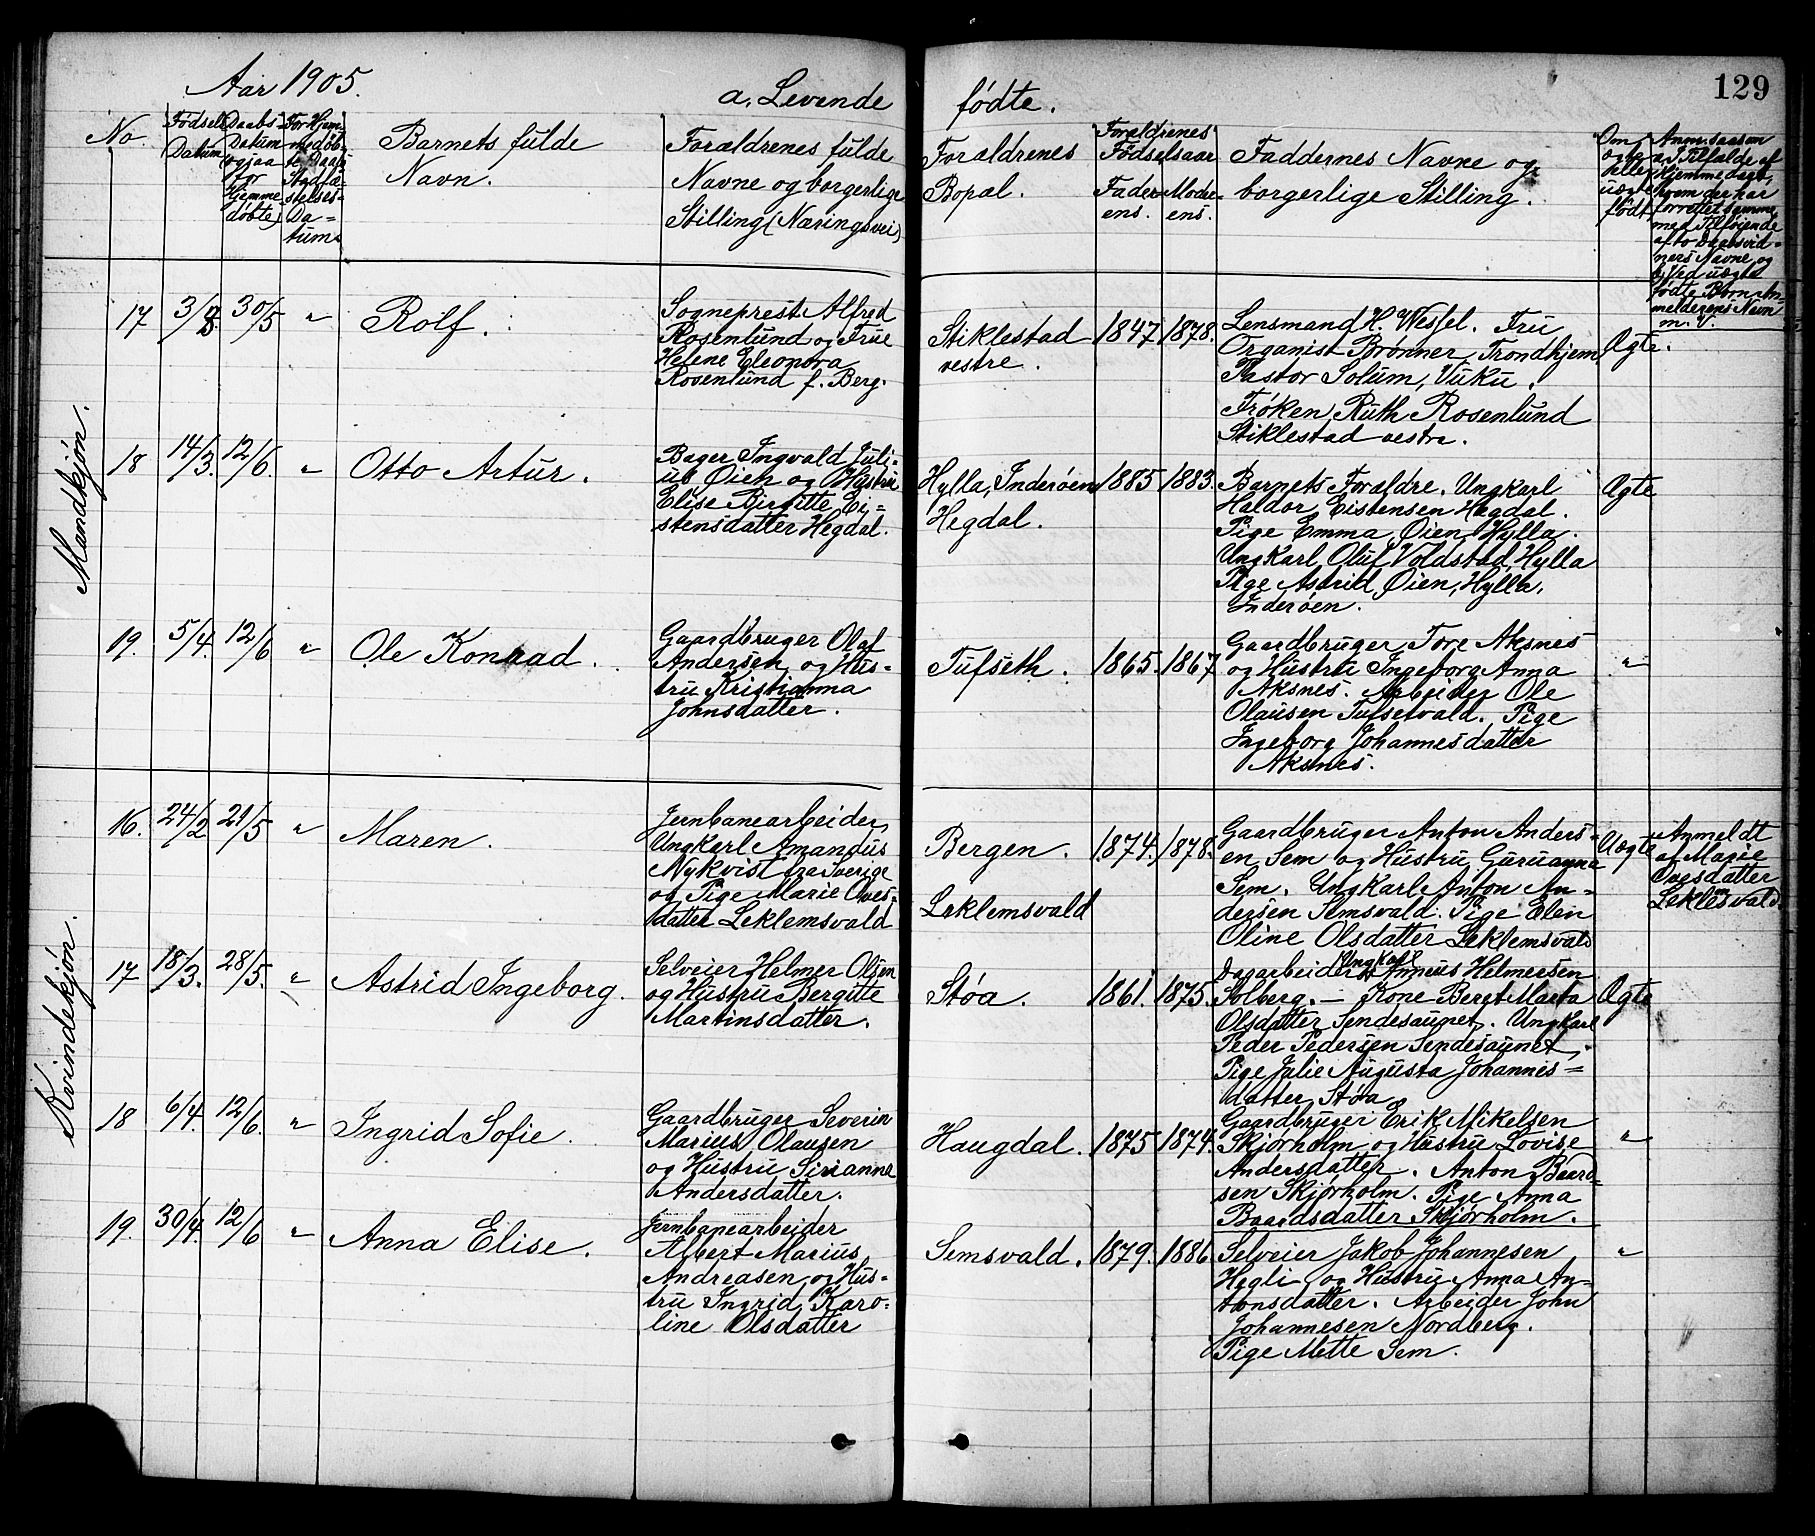 Aar 1905.
a. Levende fødte.
129
No.
Fødsels
Datum
Daabs-
Datum
ogsaa
for
hjemme
døbte
For Hjem-
medøb-
te Daabs
Stadfæ-
stelses-
Da-
tum.
Barnets fulde
Navn.
Forældrenes fulde
Navne og borgerlige
Stilling (Næringsvei)
Forældrenes
Bopæl.
Forældrenes
Fødselsaar
Fader-
ens.
Modr-
ens.
Faddernes Navne og
borgerlige Stilling.
Om
ægte
eller
uægte
født
a, I Tilfælde af
Hjemmedaab,
hvem der har
forrettet samme
med Tilføiende
af to Daabsvid-
ners Navne og
b, Ved uægte
fødte Børn An-
melderens Navn
m. V.
Mandkjøn.
17
3/3
30/5
"
Rolf.
Sogneprest Alfred
Rosenlund og Frue
Helene Eleonora
Rosenlund f. Berg.
Stiklestad
vestre.
1847
1878.
Lensmand H. Wessel. Fru
Organist Brønner, Trondhjem
Pastor Solum, Vuku.
Frøken Ruth Rosenlund
Stiklestad vestre.
Ægte.
18
14/3.
12/6.
"
Otto Artur.
Bager Ingvald Juli-
us Øien og Hustru
Elise Birgitte Ei-
stensdatter Hegdal.
Hylla, Inderøen
Hegdal.
1885
1883.
Barnets Forældre. Ungkarl
Haldor Eistensen Hegdal.
Pige Emma Øien Hylla.
Ungkarl Oluf Voldstad, Hylla
Pige Astrid Øien, Hylla,
Inderøen.
Ægte
19.
5/4.
12/6
"
Ole Konrad.
Gaardbruger Olaf
Andersen og Hus-
tru Kristianna
Johnsdatter.
Tufseth.
1865.
1867
Gaardbruger Tore Aksnes
og Hustru Ingeborg Anna
Aksnes. Arbeider Ole
Olausen Tufsetvald. Pige
Ingeborg Johannesdatter
Aksnes.
"
Kvindekjøn.
16.
24/2
21/5
"
Maren.
Jernbanearbeider,
Ungkarl Amandus
Nykvist fra Sverige
og Pige Marie Oves-
datter Leklemsvald
Bergen.
Leklemsvald
1874.
1878.
Gaardbruger Anton Anders-
en Sem og Hustru Guruanna
Sem. Ungkarl Anton An-
dersen Semsvald. Pige Elen
Oline Olsdatter Leklemsvald
Uægte
Anmeldt
af Marie
Ovesdatter
Leklemsvald.
17
18/3.
28/5.
"
Astrid Ingeborg.
Selveier Helmer Olsen
og Hustru Bergitte
Martinsdatter.
Støa.
1861.
1875.
Dagarbeider Ungkarl Annæus Helmersen
Solberg. — Kone Beret Marta
Olsdatter Sendesaunet. Ungkarl
Peder Pedersen Sendesaunet,
Pige Julie Augusta Johannis-
datter Støa
Ægte
18
6/4.
12/6.
"
Ingrid Sofie.
Gaardbruger Severin
Marius Olausen
og Hustru Sirianna
Andersdatter.
Haugdal.
1875
1874.
Gaardbruger Erik Mikelsen
Skjørholm og Hustru Lovise
Andersdatter. Anton Baard-
sen Skjørholm. Pige Anna
Baardsdatter Skjørholm.
"
19.
30/4.
12/6
"
Anna Elise.
Jernbanearbeider
Albert Marius
Andreasen og Hus-
tru Ingrid Karo-
line Olsdatter
Semsvald.
1879.
1886
Selveier Jakob Johannesen
Hegli og Hustru Anna An-
tonsdatter. Arbeider John
Johannesen Nordberg.
Pige Mette Sem.
"